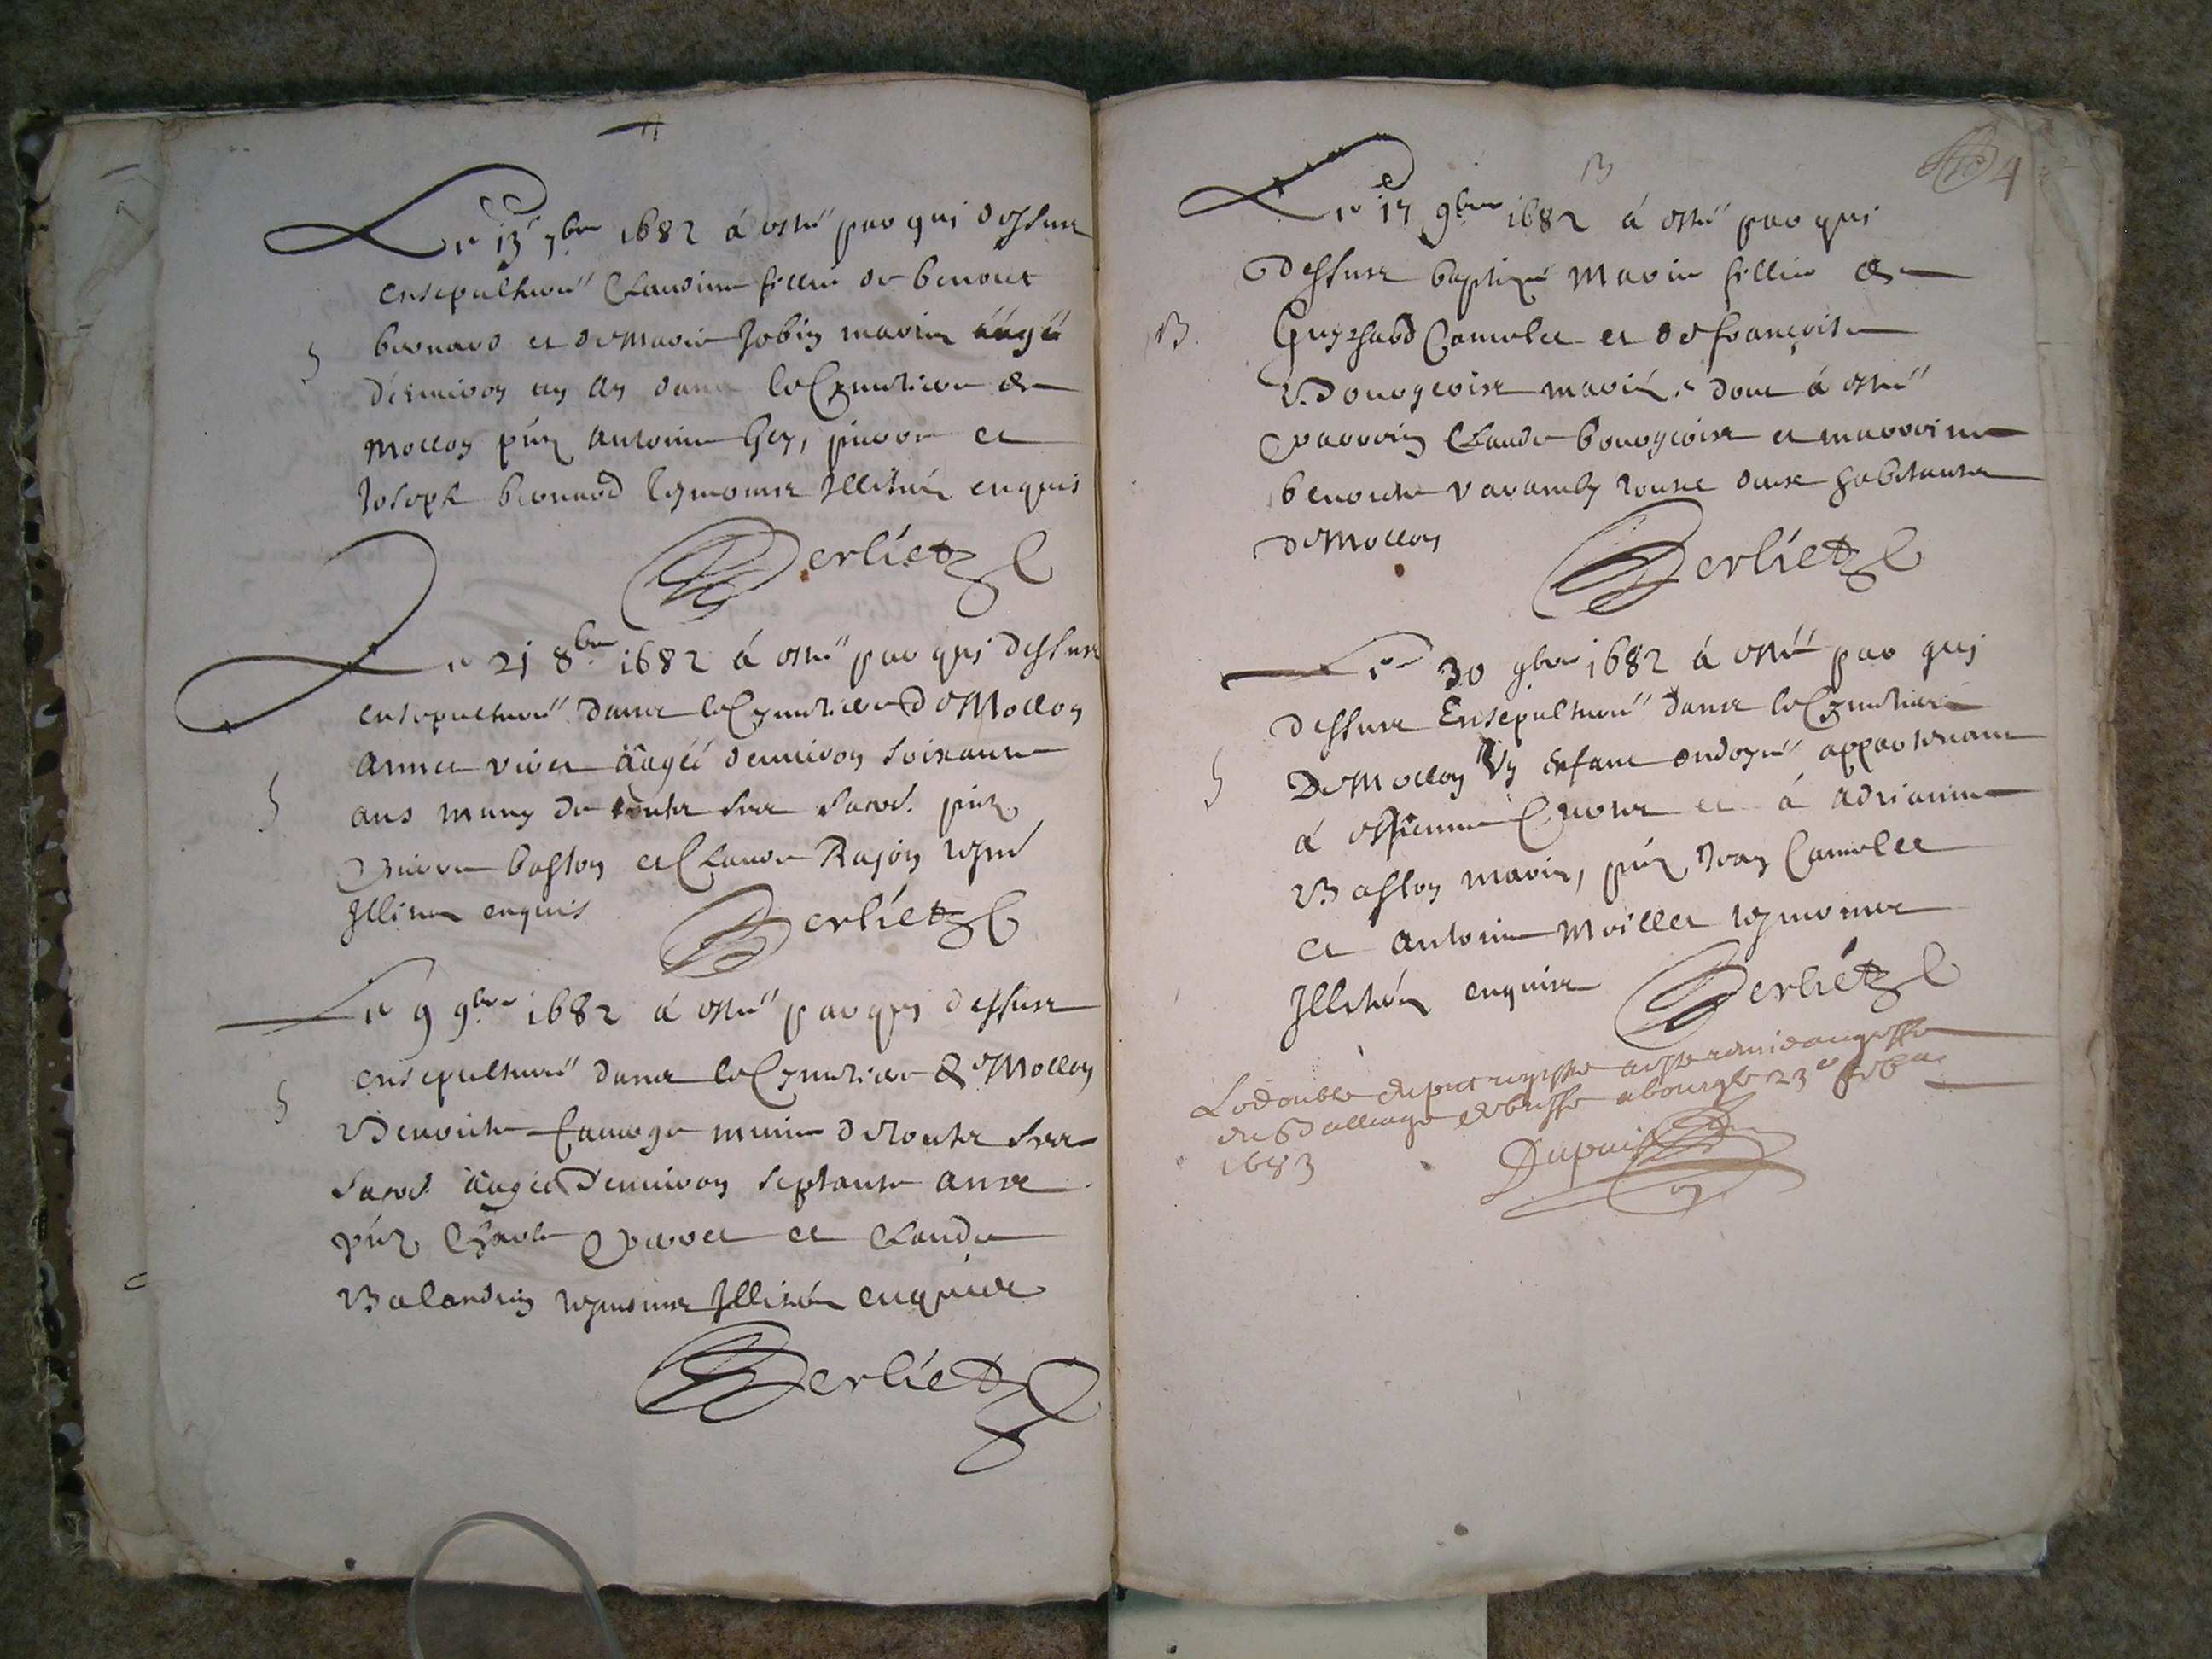 Le 13e 7bre 1682 á esté par qui dessus
ensepulturé Claudine fillie de benoict
bernard et de Marie Jobin mariés aagé
d'enuiron un an dans le Cymetiere de
Mollon pñtz Antoine Gey, pierre et
Joseph bernard tesmoins Illiterés enquis
Berliet
Le 21 8bre 1682 á esté par qui dessus
ensepulturé dans le Cymetiere de Mollon
Annee aagéé d'enuiron soixante
ans muny de toute ses sacr. pñtz
Pierre baston et Claude Rajon tesm
Illiterés enquis
Berliet
Le 9 9bre 1682 á esté par qui dessus
ensepulturé dans le Cymetiere de Mollon
Benoiste munie de toute ses
sacr. aagéé d'enuiron septante ans
pñtz Charle et Claude
Balandrin tesmoins Illiterés enquis
Berliet
4
B
Le 17 9bre 1682 á esté par qui
dessus baptizé Marie fillie de
B. Guychard Camelet et de françoise
Bourgeoise mariés, dont á esté
parrein Claude bourgeois et marreine
benoiste varambon tous deux habitants
de Mollon
Berliet
Le 30 9bre 1682 á esté par qui
dessus Ensepulturé dans le Cymetiere
De Mollon Un enfant ondoyé appartenant
á estienne et á Adrianne
Baston mariés, pñtz Jean Camelet
et Antoine Moillet tesmoins
Illiterés enquis
Berliet
Le double du pñt registre a esté remis au greffe
du Balliage de bresse a bourg le 23e feb
1683
Dupuis